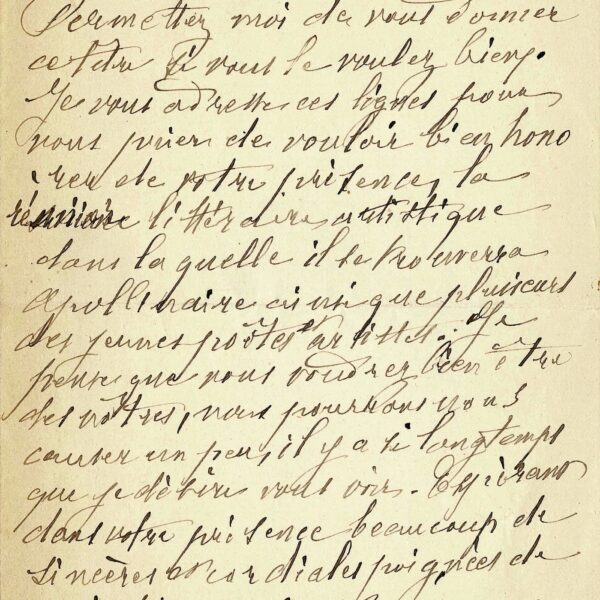 Permettez moi de vous donner
ce titre si vous le voulez bien.
Je vous adresse ces lignes pour
vous prier de vouloir bien hono
rer de votre présence, la
réunion littéraire artistique
dans laquelle il se trouverra
Apollinaire ainsi que plusieurs
des jeunes poètes et artistes. Je
pense que vous voudrez bien être
des nôtres, nous pourrons nous
causer un peu, il y a si longtemps
que je désire vous voir. Espérant
dans votre présence beaucoup de
sincères et cordiales poignées de